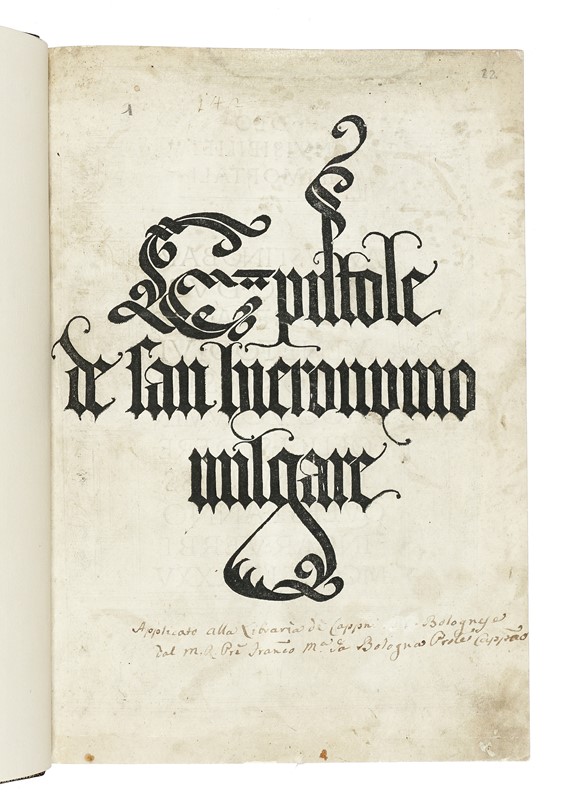 22
142
Epistole
de san hieronymo
vulgare
Applicato alla Libraria di Cappn Bolognese
dal M. R. Pre Franco Ma da Bologna Cappno